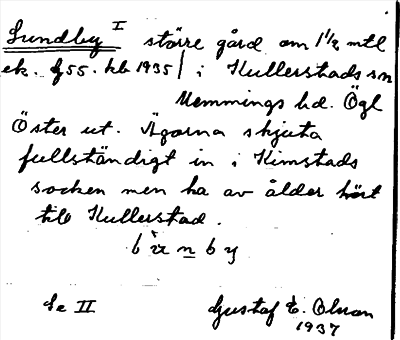 Sundby I större gård om 1 1/2 mtl
ek. bl 55. kb 1935/ i Kullerstads sn
Memmings hd. Ögl
Öster ut. Ägorna skjuta
fullständigt in i Kimstads
socken men ha av ålder hört
till Kullerstad.
b ù n b y
Se II Gustaf E. Olson
1937